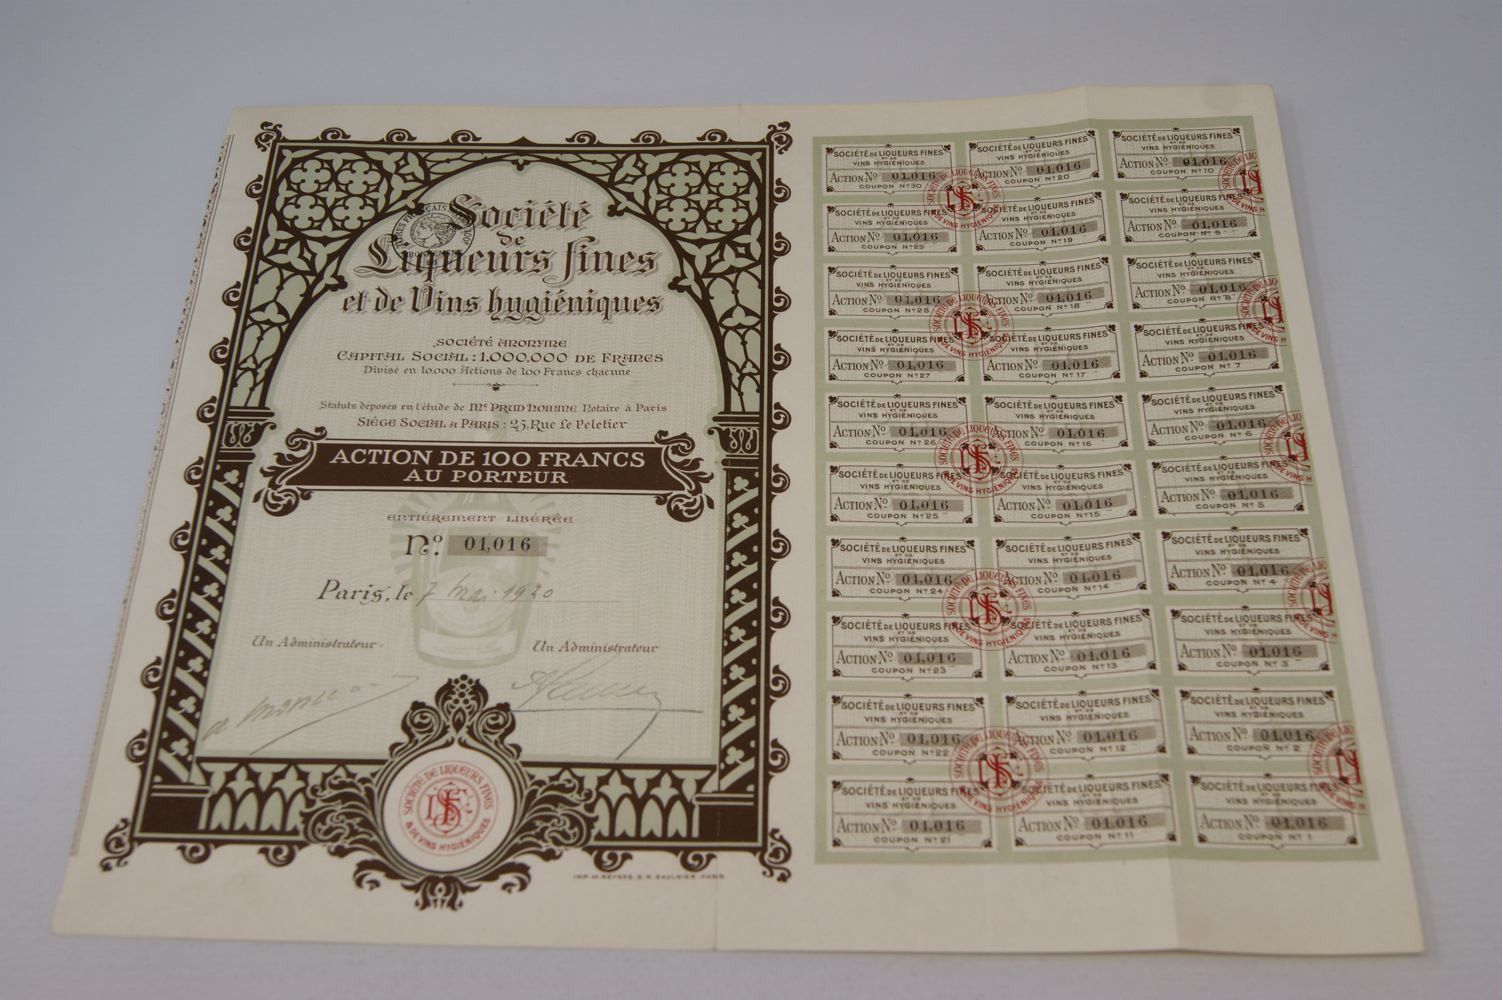 Société
de
Liqueurs fines
et de Vins hygiéniques
SOCIÉTÉ ANONYME
CAPITAL SOCIAL : 1.000.000 DE FRANCS
Divisé en 10.000 Actions de 100 Francs chacune
Statuts déposés en l'étude de Me PRUD'HOMME Notaire à Paris
SIÈGE SOCIAL A PARIS : 23, Rue Le Peletier
ACTION DE 100 FRANCS
AU PORTEUR
ENTIÈREMENT LIBÉRÉE
No. 01,016
Paris, le 7 mai 1920
Un Administrateur.
Un Administrateur
SOCIÉTÉ DE LIQUEURS FINES
& DE VINS HYGIÉNIQUES
IMP. M. REYSRE. 5. R. SAULNIER. PARIS
SOCIÉTÉ DE LIQUEURS FINES
ET DE
VINS HYGIÉNIQUES
ACTION No. 01,016
COUPON No 30
SOCIÉTÉ DE LIQUEURS FINES
ET DE
VINS HYGIÉNIQUES
ACTION No. 01,016
COUPON No 20
SOCIÉTÉ DE LIQUEURS FINES
ET DE
VINS HYGIÉNIQUES
ACTION No. 01,016
COUPON No 10
SOCIÉTÉ DE LIQUEURS FINES
ET DE
VINS HYGIÉNIQUES
ACTION No. 01,016
COUPON No 29
SOCIÉTÉ DE LIQUEURS FINES
ET DE
VINS HYGIÉNIQUES
ACTION No. 01,016
COUPON No 19
SOCIÉTÉ DE LIQUEURS FINES
ET DE
VINS HYGIÉNIQUES
ACTION No. 01,016
COUPON No 9
SOCIÉTÉ DE LIQUEURS FINES
ET DE
VINS HYGIÉNIQUES
ACTION No. 01,016
COUPON No 28
SOCIÉTÉ DE LIQUEURS FINES
ET DE
VINS HYGIÉNIQUES
ACTION No. 01,016
COUPON No 18
SOCIÉTÉ DE LIQUEURS FINES
ET DE
VINS HYGIÉNIQUES
ACTION No. 01,016
COUPON No 8
SOCIÉTÉ DE LIQUEURS FINES
ET DE
VINS HYGIÉNIQUES
ACTION No. 01,016
COUPON No 27
SOCIÉTÉ DE LIQUEURS FINES
ET DE
VINS HYGIÉNIQUES
ACTION No. 01,016
COUPON No 17
SOCIÉTÉ DE LIQUEURS FINES
ET DE
VINS HYGIÉNIQUES
ACTION No. 01,016
COUPON No 7
SOCIÉTÉ DE LIQUEURS FINES
ET DE
VINS HYGIÉNIQUES
ACTION No. 01,016
COUPON No 26
SOCIÉTÉ DE LIQUEURS FINES
ET DE
VINS HYGIÉNIQUES
ACTION No. 01,016
COUPON No 16
SOCIÉTÉ DE LIQUEURS FINES
ET DE
VINS HYGIÉNIQUES
ACTION No. 01,016
COUPON No 6
SOCIÉTÉ DE LIQUEURS FINES
ET DE
VINS HYGIÉNIQUES
ACTION No. 01,016
COUPON No 25
SOCIÉTÉ DE LIQUEURS FINES
ET DE
VINS HYGIÉNIQUES
ACTION No. 01,016
COUPON No 15
SOCIÉTÉ DE LIQUEURS FINES
ET DE
VINS HYGIÉNIQUES
ACTION No. 01,016
COUPON No 5
SOCIÉTÉ DE LIQUEURS FINES
ET DE
VINS HYGIÉNIQUES
ACTION No. 01,016
COUPON No 24
SOCIÉTÉ DE LIQUEURS FINES
ET DE
VINS HYGIÉNIQUES
ACTION No. 01,016
COUPON No 14
SOCIÉTÉ DE LIQUEURS FINES
ET DE
VINS HYGIÉNIQUES
ACTION No. 01,016
COUPON No 4
SOCIÉTÉ DE LIQUEURS FINES
ET DE
VINS HYGIÉNIQUES
ACTION No. 01,016
COUPON No 23
SOCIÉTÉ DE LIQUEURS FINES
ET DE
VINS HYGIÉNIQUES
ACTION No. 01,016
COUPON No 13
SOCIÉTÉ DE LIQUEURS FINES
ET DE
VINS HYGIÉNIQUES
ACTION No. 01,016
COUPON No 3
SOCIÉTÉ DE LIQUEURS FINES
ET DE
VINS HYGIÉNIQUES
ACTION No. 01,016
COUPON No 22
SOCIÉTÉ DE LIQUEURS FINES
ET DE
VINS HYGIÉNIQUES
ACTION No. 01,016
COUPON No 12
SOCIÉTÉ DE LIQUEURS FINES
ET DE
VINS HYGIÉNIQUES
ACTION No. 01,016
COUPON No 2
SOCIÉTÉ DE LIQUEURS FINES
ET DE
VINS HYGIÉNIQUES
ACTION No. 01,016
COUPON No 21
SOCIÉTÉ DE LIQUEURS FINES
ET DE
VINS HYGIÉNIQUES
ACTION No. 01,016
COUPON No 11
SOCIÉTÉ DE LIQUEURS FINES
ET DE
VINS HYGIÉNIQUES
ACTION No. 01,016
COUPON No 1